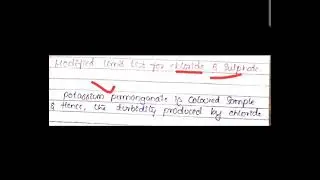 Modified limit test for chloride & Sulphate
potassium permanganate is coloured sample
& Hence, the turbidity produced by chloride